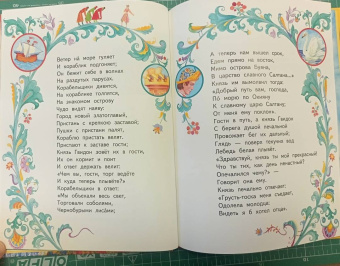 Ветер на море гуляет
И кораблик подгоняет;
Он бежит себе в волнах
На раздутых парусах.
Корабельщики дивятся,
На кораблике толпятся,
На знакомом острову
Чудо видят наяву:
Город новый златоглавый,
Пристань с крепкою заставой;
Пушки с пристани палят,
Кораблю пристать велят.
Пристают к заставе гости;
Князь Гвидон зовёт их в гости,
Их он кормит и поит
И ответ держать велит:
«Чем вы, гости, торг ведёте
И куда теперь плывёте?»
Корабельщики в ответ:
«Мы объехали весь свет,
Торговали соболями,
Чернобурыми лисами;
А теперь нам вышел срок,
Едем прямо на восток,
Мимо острова Буяна,
В царство славного Салтана...»
Князь им вымолвил тогда:
«Добрый путь вам, господа,
По морю по Окияну
К славному царю Салтану;
От меня ему поклон».
Гости в путь, а князь Гвидон
С берега душой печальной
Провожает бег их дальный;
Глядь — поверх текучих вод
Лебедь белая плывёт.
«Здравствуй, князь ты мой прекрасный!
Что ты тих, как день ненастный?
Опечалился чему?» —
Говорит она ему.
Князь печально отвечает:
«Грусть-тоска меня съедает,
Одолела молодца:
Видеть я б хотел отца».